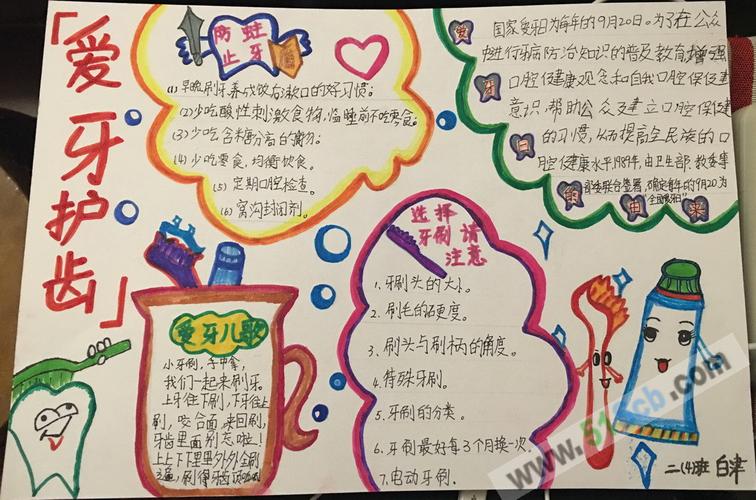 「爱牙护齿」
防蛀
止牙
(1) 早晚刷牙养成饭后漱口的好习惯;
(2) 少吃酸性刺激食物,临睡前不吃零食;
(3) 少吃含糖分高的食物。
(4) 少吃零食,均衡饮食。
(5) 定期口腔检查。
(6) 窝沟封闭剂。
爱牙日的由来
国家爱牙日为每年的9月20日。为了在公众
中进行牙病防治知识的普及教育,增强
口腔健康观念和自我口腔保健
意识,帮助公众建立口腔保健
的习惯,从而提高全民族的口
腔健康水平,1989年,由卫生部、教委等
部委联合签署,确定每年的9月20为
"全国爱牙日"
爱牙儿歌
小牙刷,手中拿,
我们一起来刷牙。
上牙往下刷,下牙往上
刷,咬合面来回刷,
牙齿里面别忘啦!
上上下下里里外外全刷
选择
牙刷请
注意
1、牙刷头的大小。
2、刷毛的硬度。
3、刷头与刷柄的角度。
4、特殊牙刷。
5、牙刷的分类。
6、牙刷最好每3个月换一次。
7、电动牙刷。
二(4)班 白聿